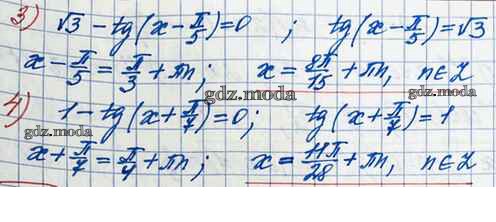 3) √3 - tg(x - π/5) = 0 ; tg(x - π/5) = √3
x - π/5 = π/3 + πn; x = 8π/15 + πn, n∈Z
gdz.moda gdz.moda
4) 1 - tg(x + π/7) = 0; tg(x + π/7) = 1
gdz.moda gdz.moda
x + π/7 = π/4 + πn; x = 11π/28 + πn, n∈Z
gdz.moda